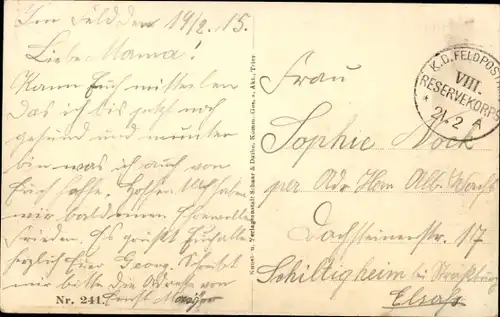 Im Feld den 19/2.15.
Liebe Mama!
Kann Euch mitteilen
das ich bis jetzt noch
gesund und munter
bin was ich auch von
Euch hoffe. Hoffen haben
wir bald einen
Frieden. Es grüßt Euch alle
herzlich Euer Georg. Schreibt
mir bitte die Adresse von
Nr. 241.
Kunst- u. Verlagsanstalt Schaar & Dathe, Komm.-Ges. a. Akt., Trier
K.D. FELDPOST
VIII.
RESERVEKORPS
* 21 2 A
Frau
Sophie Nock
per Adr Herrn Alb.
Dachsteinerstr. 17
Schiltigheim bei Straßburg
Elsaß